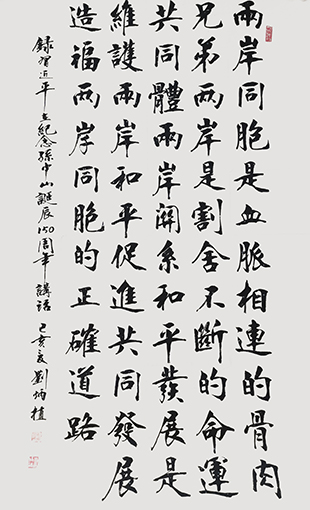 兩岸同胞是血脈相連的骨肉
兄弟两岸是割舍不斷的命運
共同體兩岸関系和平發展是
維護两岸和平促進共同發展
造福两岸同胞的正確道路
錄習近平在紀念孫中山誕辰150周年講話 己亥夏 劉炳植